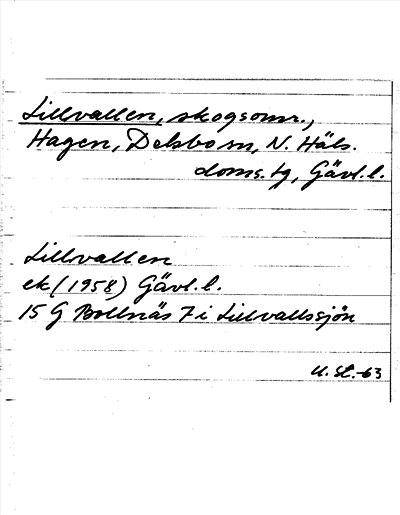 Lillvallen, skogsomr.,
Hagen, Delsbo sn, N. Häls.
doms.tg, Gävl.l.
Lillvallen
ek (1958) Gävl.l.
15 G Bollnäs 7 i Lillvallssjön
U. St.-63